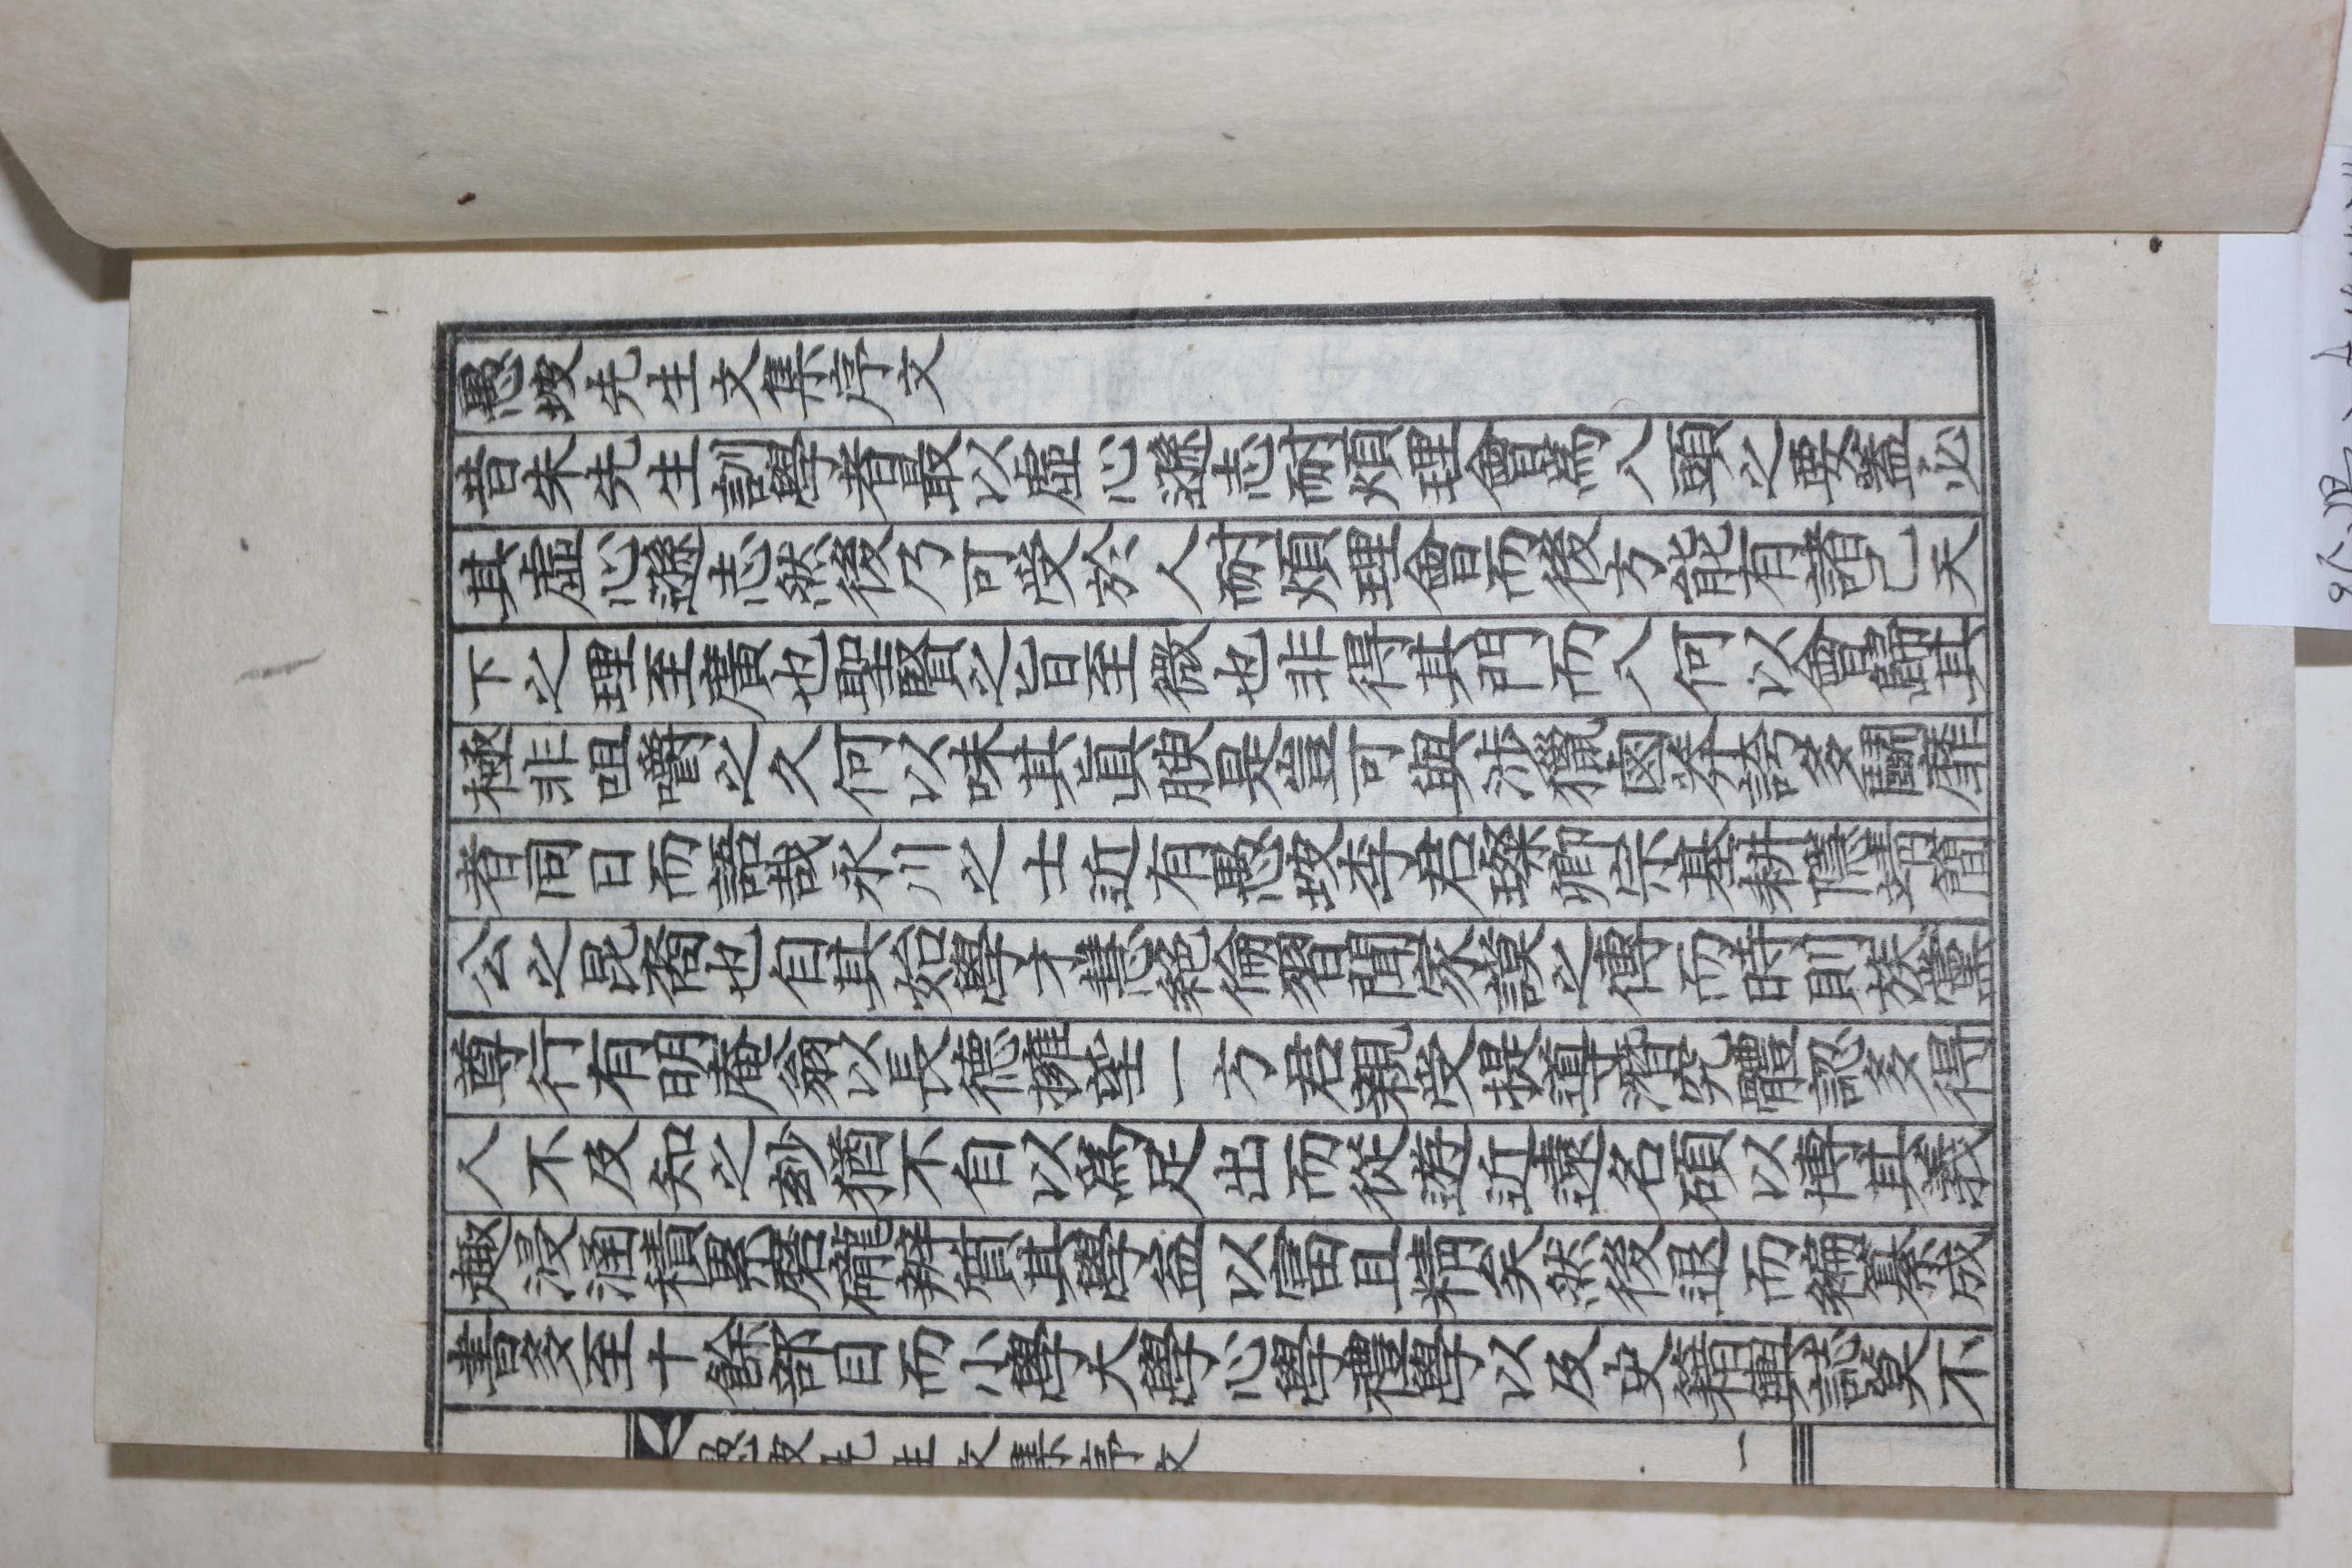 愚坡先生文集序文
昔朱先生訓學者最以虛心遜志耐煩理會爲八頭之要蓋必
其虛心遜志然後乃可受於人耐煩理會而後方能有諸己天
下之理至廣也聖賢之旨至微也非得其門而入何以會歸其
極非咀嚼之久何以味其眞腴是豈可與涉獵鹵莽誇多鬪靡
者同日而語哉永川之士近有愚坡李君璨卿宗基耕隱靖簡
公之昆裔也自其始學才慧絶倫習聞家謨之傳而時則族黨
尊行有明庵翁以長德擁望一方君親受提導潛究體認多得
人不及知之玅猶不自以爲足出而從遊近遠名碩以博其義
趣浸涵積累磨礲辨質其學益以富且精矣然後退而編纂成
書多至十餘部目而小學大學心學禮學以及史籍輿誌莫不
愚坡先生文集序文
一